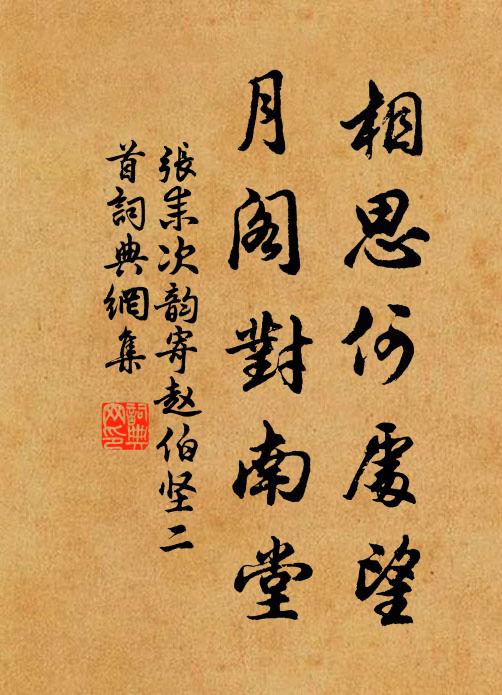 相思何處望
月阁對南堂
張耒次韵寄赵伯坚二
首詞典網集
詞典
网印